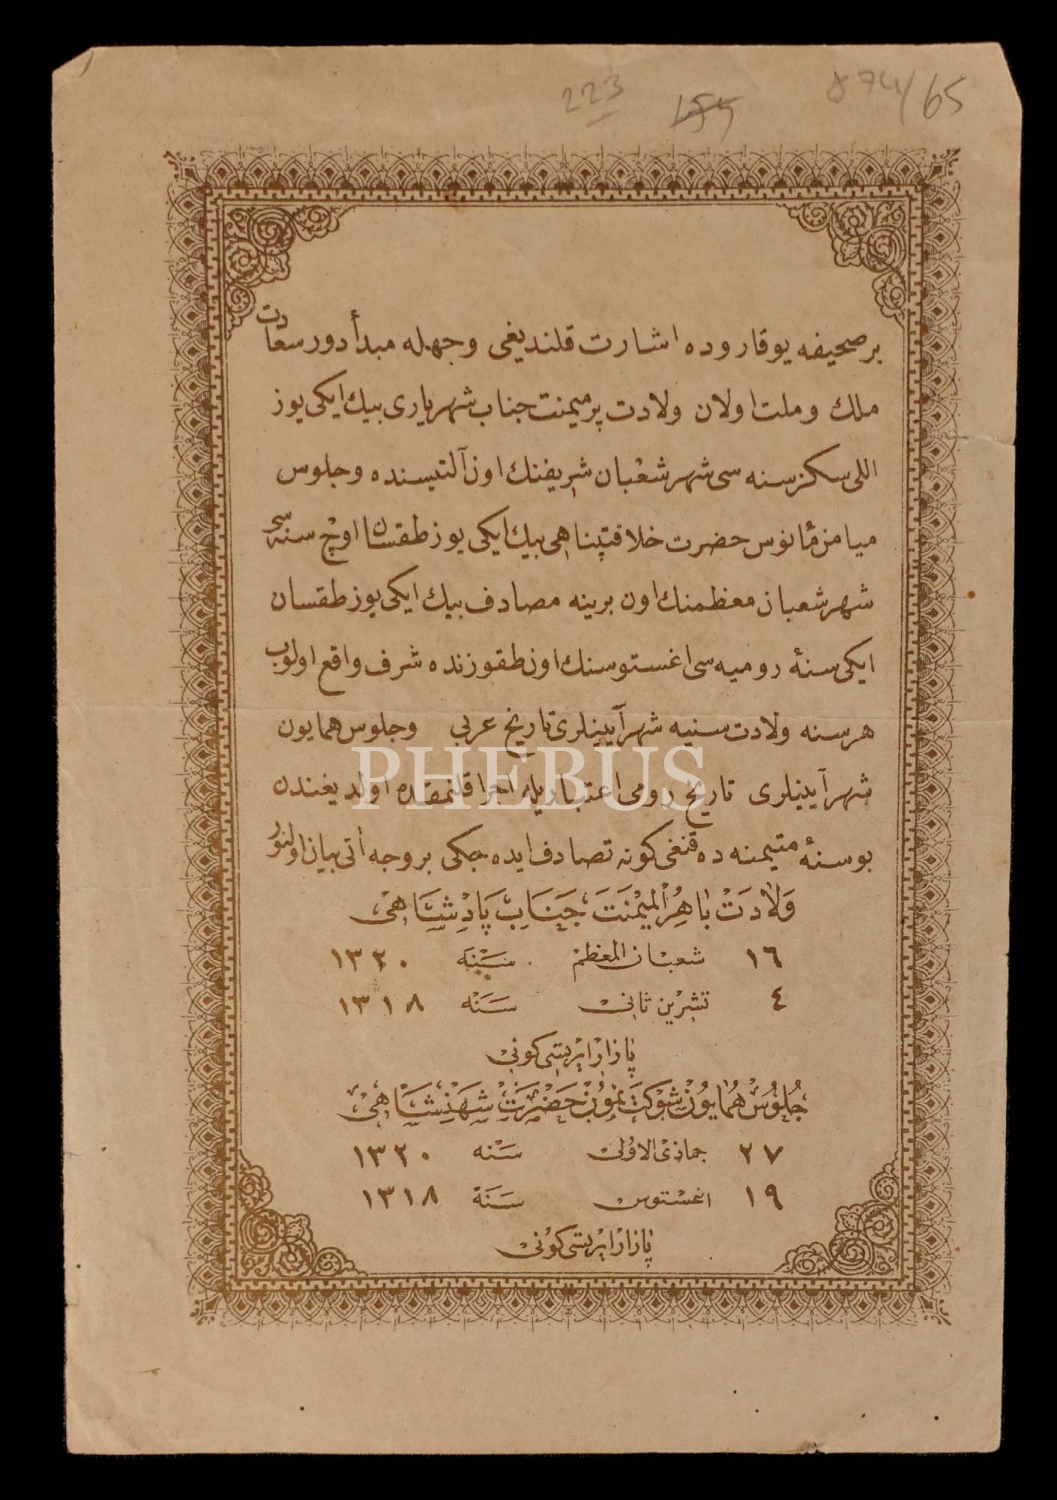 223 874/65
بر صحيفه يوقاروده اشارت قلنديغى وجهله مبدأ دور سعادت
ملك وملت اولان ولادت پر ميمنت جناب شهريارى بيك ايكى يوز
اللى سكز سنه سى شهر شعبان شريفنك اون آلتيسنده وجلوس
ميامن مأنوس حضرت خلافتپناهى بيك ايكى يوز طقسان اوچ سنه سى
شهر شعبان معظمنك اون برينه مصادف بيك ايكى يوز طقسان
ايكى سنۀ روميه سى اغستوسنك اون طقوزنده شرف واقع اولوب
هر سنه ولادت سنيه شهرآيينلرى تاريخ عربى وجلوس همايون
شهرآيينلرى تاريخ رومى اعتباريله اجرا قلنمقده اولديغندن
بو سنۀ متيمنه ده قنغى كونه تصادف ايده جكى بر وجه آتى بيان اولنور
وَلَادَتْ بَاهِرُ الْمَيْمَنَتَ جَنَابْ پَادِشَاهِى
١٦ شعبان المعظم سَنَه ١٣٢٠
٤ تشرين ثانى سَنَه ١٣١٨
پازار ايرتسى كونى
جُلُوسْ هُمَايُونْ شَوْكَتْ نمُونْ حَضْرَتْ شَهَنْشَاهِى
٢٧ جماذى الاولى سَنَه ١٣٢٠
١٩ اغستوس سَنَة ١٣١٨
پازار ايرتسى كونى
PHEBUS